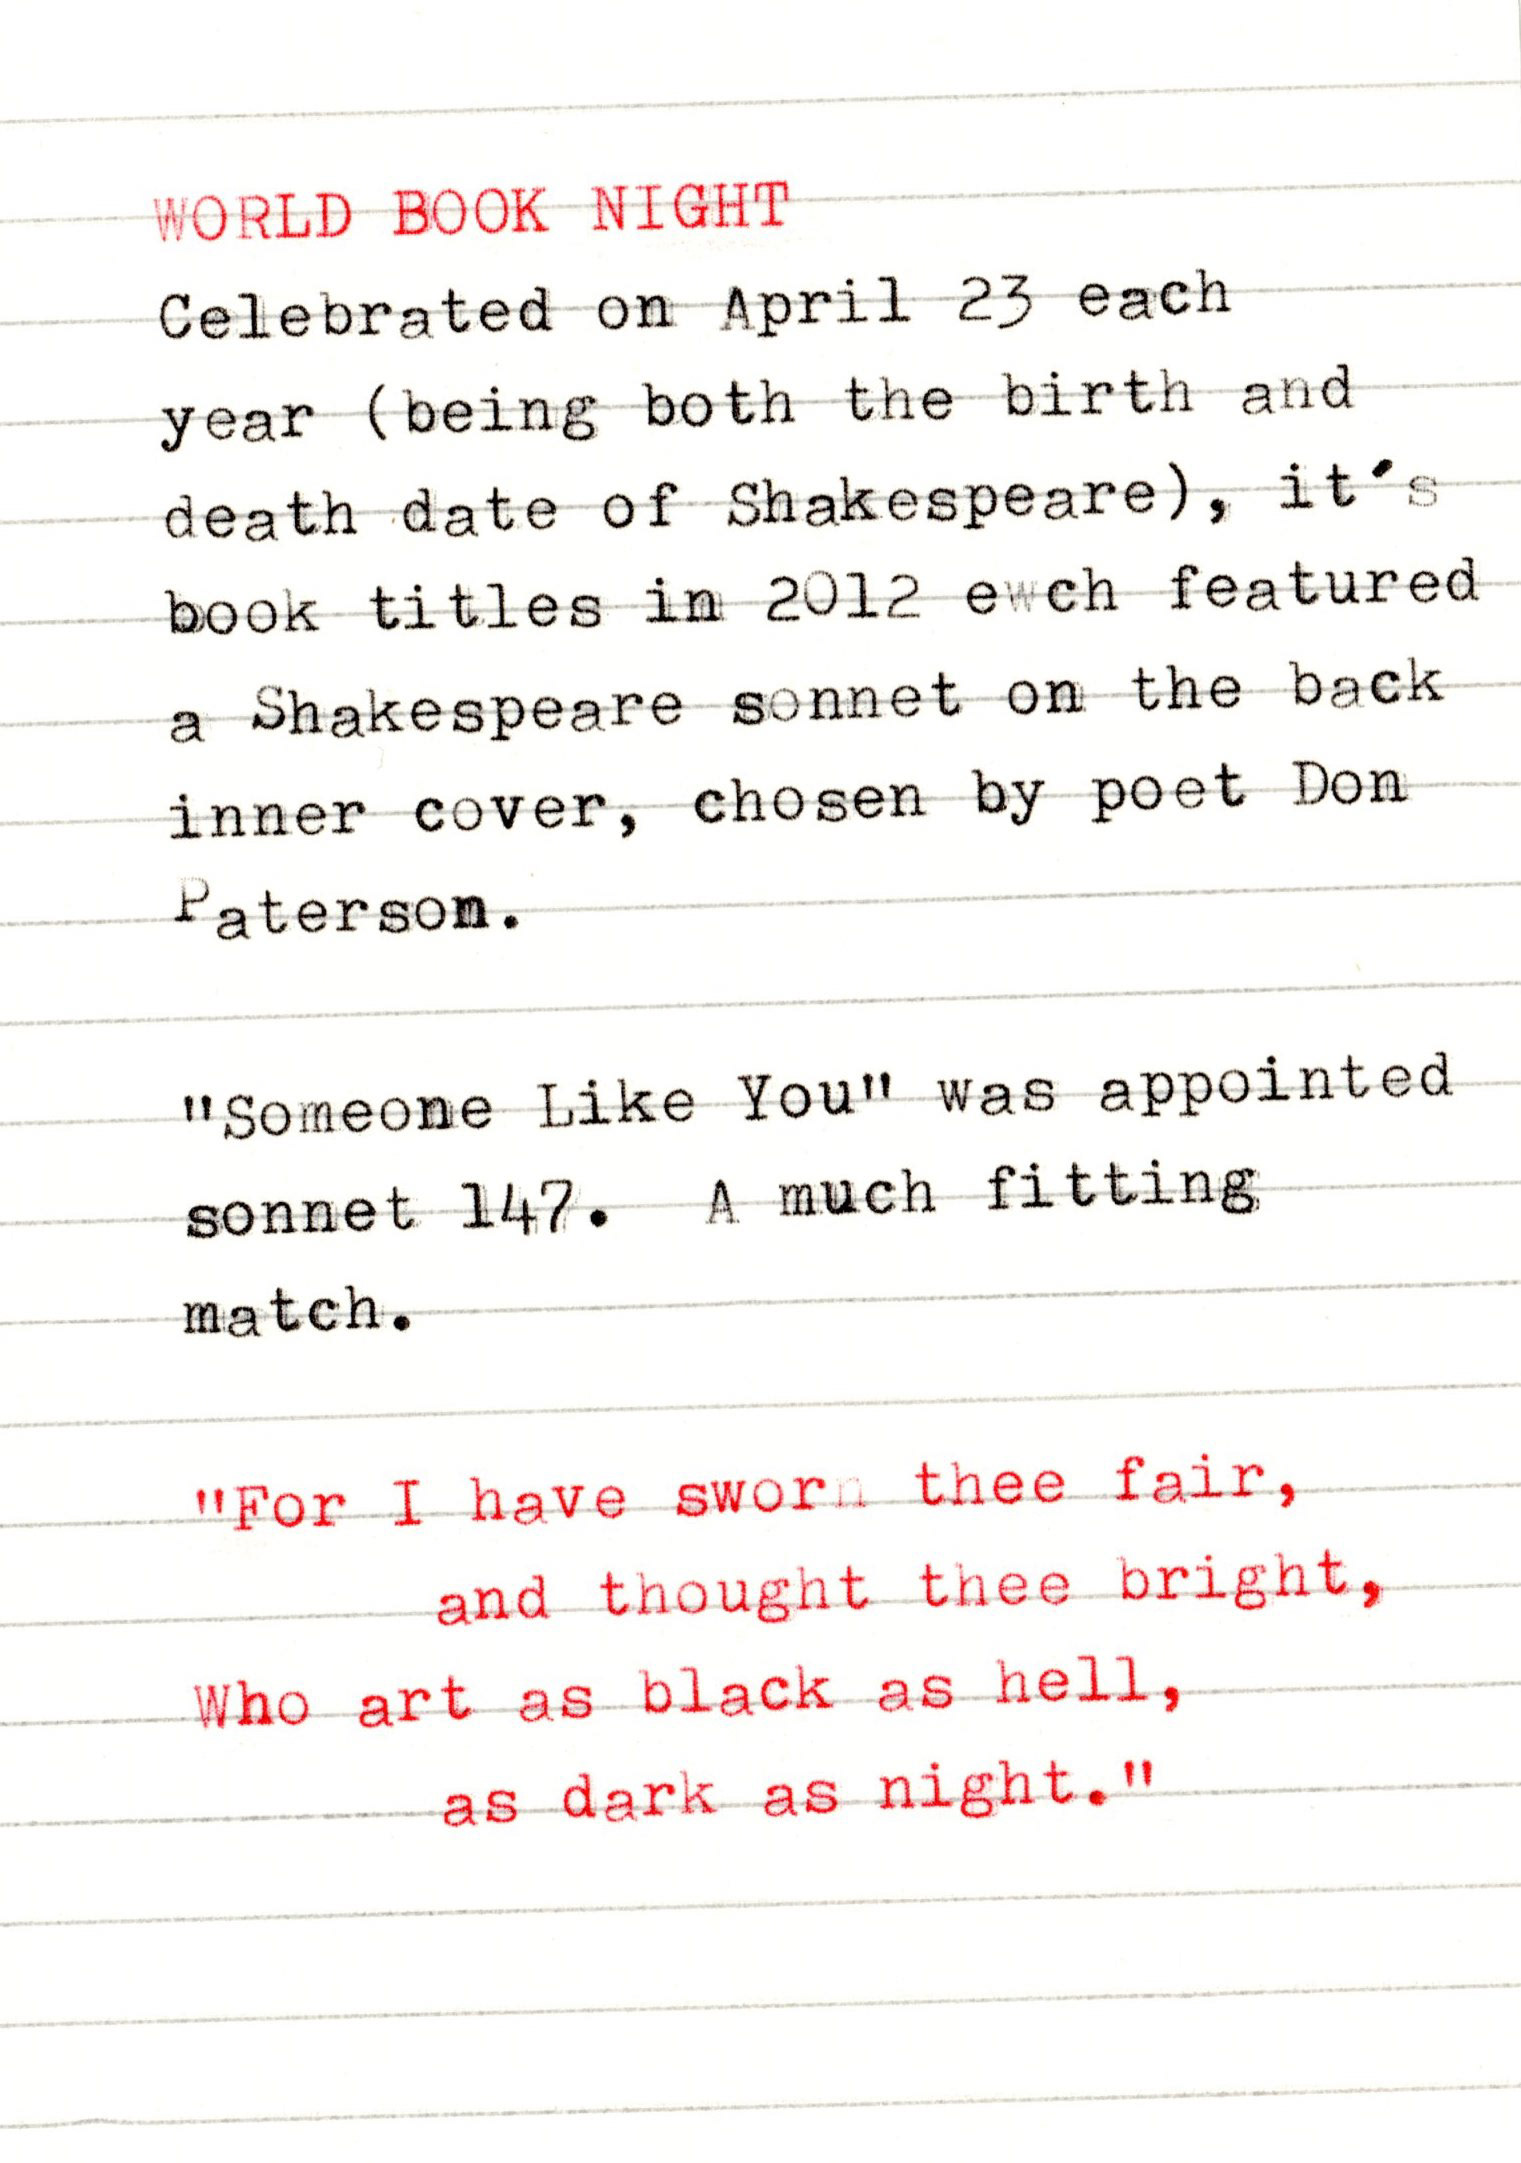 WORLD BOOK NIGHT
Celebrated on April 23 each
year (being both the birth and
death date of Shakespeare), it's
book titles in 2012 ewch featured
a Shakespeare sonnet on the back
inner cover, chosen by poet Don
Paterson.
"Someone Like You" was appointed
sonnet 147.  A much fitting
match.
"For I have sworn thee fair,
and thought thee bright,
Who art as black as hell,
as dark as night."